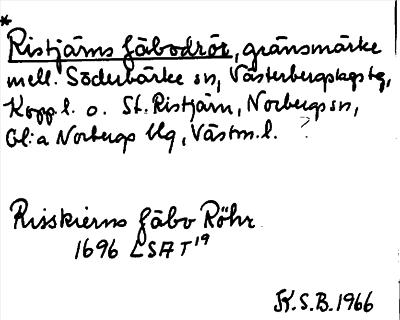 *
Ristjärns fäbodrös, gränsmärke
mell. Söderbärke sn, Västerbergslags tg,
Kopp.l. o. St. Ristjärn, Norbergs sn,
Gl:a Norbergs blg, Västm.l. ?
Risskierns fäbo Röhr
1696 LSA T19
K.S.B. 1966